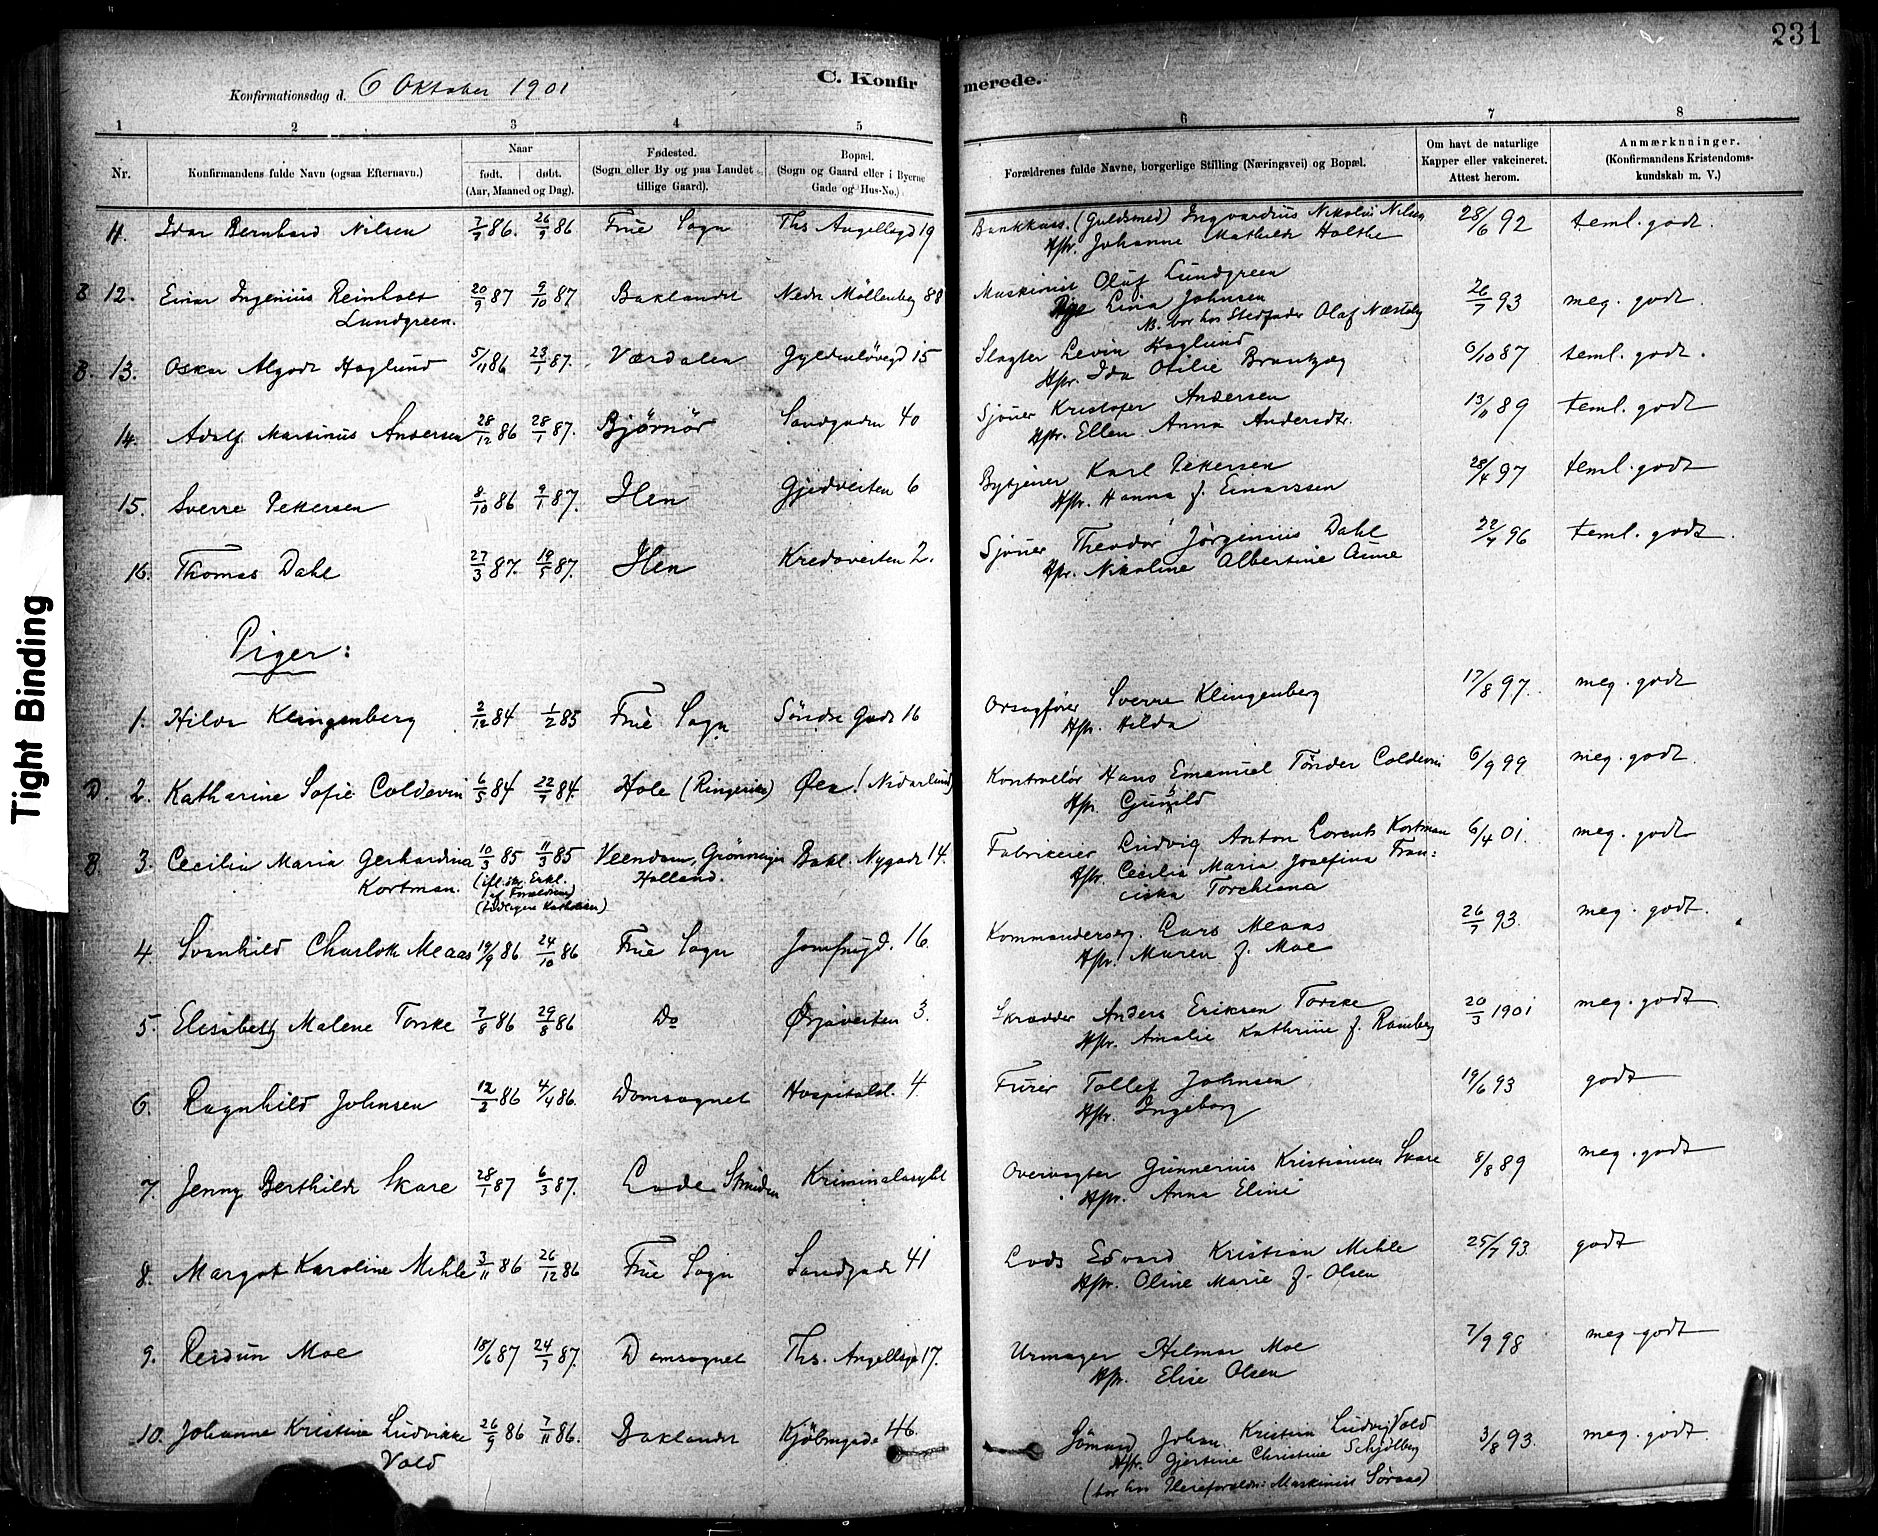 231
C. Konfirmerede.
Konfirmationsdag d. 6 Oktober 1901
1 2 3 4 5 6 7 8
Nr. Konfirmandens fulde Navn (ogsaa Efternavn.) Naar født. døbt. (Aar, Maaned og Dag). Fødested. (Sogn eller By og paa Landet tillige Gaard). Bopæl. (Sogn og Gaard eller i Byerne Gade og Hus-No.) Forældrenes fulde Navne, borgerlige Stilling (Næringsvei) og Bopæl. Om havt de naturlige Kapper eller vakcineret. Attest herom. Anmærkninger. (Konfirmandens Kristendomskundskab m. V.)
11. Idar Bernhard Nilsen 7/7 86. 26/9 86 Frue Sogn Ths Angellsgd 19 Bankkass. (Guldsmed) Ingvardius Nikolai Nilsen 28/6 92 teml. godt.
Hstr. Johanne Mathilde Holthe
B 12. Einar Ingenius Reinholt 20/9 87 9/10 87 Baklandet Nedr Möllenberg 88 Maskinist Oluf Lundgreen 26/7 93 meg. godt.
Lundgreen. Pige Lina Johnsen
B. bor hos Stedfader Olaf Næstby
B. 13. Oskar Algodt Haglund 5/11 86 23/1 87. Værdalen Gyldenløvegd 15 Slagter Levin Haglund 6/10 87 teml. godt.
Hstr. Ida Otilie Brantzæg
14. Adolf Martinus Andersen 28/12 86 28/1 87. Bjørnør Sandgaden 40 Sjouer Kristofer Andersen 13/11 89 teml. godt
Hstr. Ellen Anna Andersdtr.
15. Sverre Pettersen 8/10 86 9/1 87. Ilen Gjedveiten 6 Bytjener Karl Petersen 28/4 97 teml. godt
Hstr. Hanna f. Einarssen
16. Thomas Dahl 27/3 87. 19/5 87. Ilen Kredoveiten 2. Sjouer Theodor Jørginius Dahl 22/4 96 teml. godt.
Hstr. Nikoline Albertine Aune
Piger:
1. Hilda Klingenberg 2/12 84 1/2 85 Frue Sogn Söndre Gade 16 Orsagfører Sverre Klingenberg 17/8 97. meg. godt
Hstr. Hilda
D. 2. Katharine Sofie Coldevin 6/5 84 22/7 84. Hole (Ringerike) Øen (Nidarlund) Kontrollør Hans Emanuel Tønder Coldevin 6/9 99 meg. godt
Hstr. Gunhild
B. 3. Cecilia Maria Gerhardina 10/3 85 11/3 85 Veendam, Grønningen Bakl. Nygade 14. Fabrikeier Ludvig Anton Lorents Kortman 6/4 01 meg. godt
Kortman. (ifl. skr. Erkl. af Forældrene) Holland. Hstr. Cecilia Maria Josefina Fran:
(tidligere Katholiken) ciska Torchiana
4. Svanhild Charlotte Meaas 19/9 86 24/10 86 Frue Sogn Jomfrugd. 16. Kommandersg. Lars Meaas 26/7 93. meg. godt.
Hstr. Maren f. Moe
5. Elisabeth Malene Torske 7/8 86 29/8 86 Do Ørjaveiten 3. Skrædder Anders Eriksen Torske 20/3 1901 meg. godt
Hstr. Amalie Kathrine f. Ramberg
6. Ragnhild Johnsen 12/2 86 4/4 86. Domsognet Hospitalsl. 4. Furer Tollef Johnsen 19/6 93 godt
Hstr. Ingeborg
7. Jenny Berthilde Skare 28/1 87 6/3 87. Lade Strinden Kriminalasylet Overvogter Gunnerius Kristiansen Skare 8/8 89 meg. godt
Hstr. Anna Eline
8. Margot Karoline Mehle 3/11 86 26/12 86 Frue Sogn Sandgade 41 Lods Edvard Kristian Mehle 25/7 93. godt
Hstr. Oline Marie f. Olsen
9. Reidun Moe 18/6 87 24/7 87. Domsognet Ths. Angellsgd 17. Urmager Hilmar Moe 7/9 98 meg. godt
Hstr. Elise Olsen
10. Johanna Kristine Ludvikke 26/9 86 7/11 86. Baklandet Kjöbmgade 46. Sömand Johan Kristian Ludvig Vold 3/8 93. meg. godt.
Vold Hstr. Gjertine Christine Schjölberg
(bor hos Pleieforældre: Maskinist Söraas)
Tight Binding